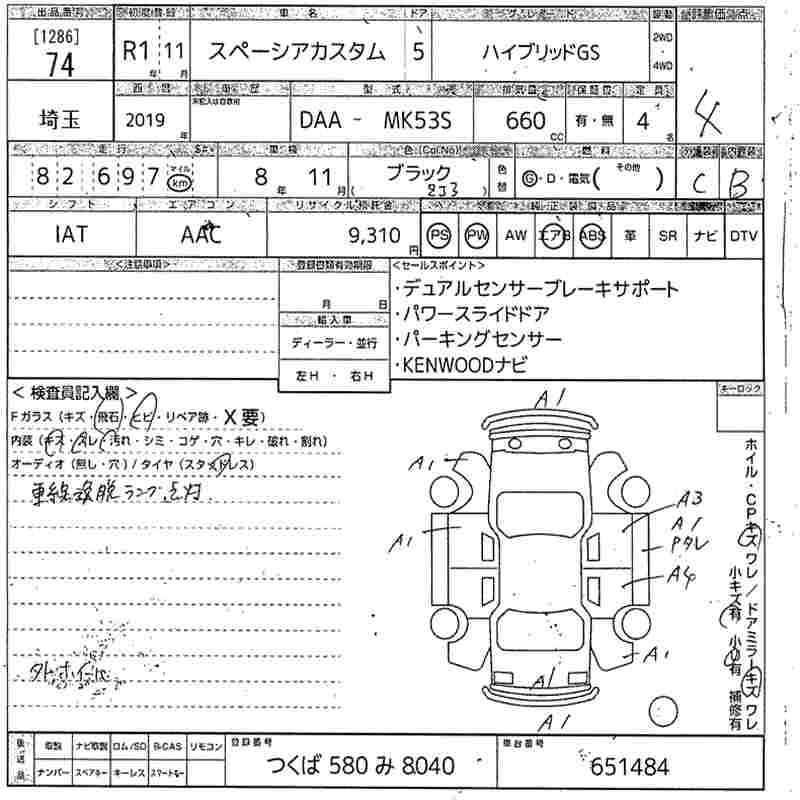 出品番号 初度登録 車名 ドア グレード 駆動 評価点
[1286]
74 R1 11 スペーシアカスタム 5 ハイブリッドGS 2WD
年 月 4WD
4
西暦 車歴 型式 排気量 保証書 定員
未記入は自家用
埼玉 2019 年 DAA - MK53S 660 CC 有・無 4 名
走行 車検 色(Col.No) 燃料 外装 内装
82,697 マイル km 8 年 11 月 ブラック 色替 G・D・電気( その他 ) C B
ZJ3
シフト エアコン リサイクル預託金 純正装備品
IAT AAC 9,310 円 PS PW AW エアB ABS 革 SR ナビ DTV
<注意事項> 登録書類有効期限 <セールスポイント>
月 日
輸入車
ディーラー・並行
左H ・ 右H
・デュアルセンサーブレーキサポート
・パワースライドドア
・パーキングセンサー
・KENWOODナビ
< 検査員記入欄 > キーロック
Fガラス (キズ・飛石・ヒビ・リペア跡・X要)
内装 (キズ・スレ・汚れ・シミ・コゲ・穴・キレ・破れ・割れ)
オーディオ (無し・穴) / タイヤ (スタッドレス)
車線逸脱ランプ点灯
A1
A1
A3
A1
A1
Pタレ
A4
A1
A1
A1
ホイル・CPキズ ワレ / ドアミラーキズ ワレ
小キズ有 小凹有 補修有
後送品 取説 ナビ取説 ロム/SD B-CAS リモコン 登録番号 車台番号
ナンバー スペアキー キーレス スマートキー つくば 580 み 8040 651484